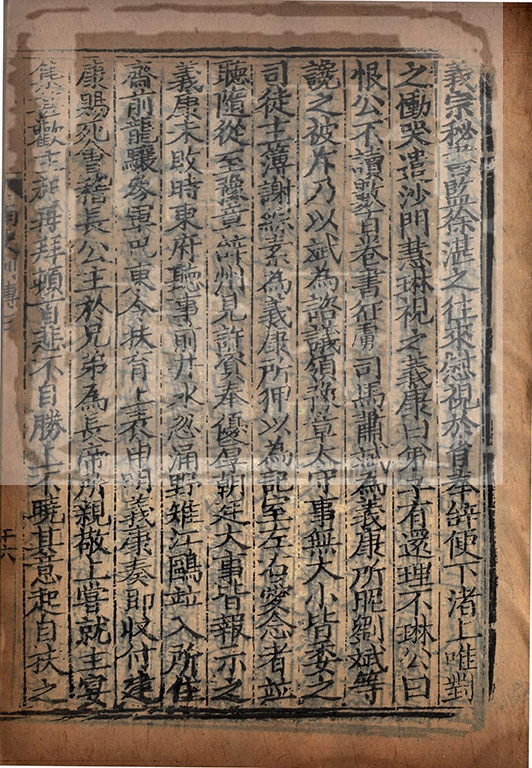 義宗秘書監徐湛之往來慰視於省奉辭便下渚上唯對
之慟哭遣沙門慧琳視之義康曰弟子有還理不琳公曰
恨公不讀數百卷書征虜司馬蕭斌為義康所昵劉斌等
讒之被斥乃以斌為諮議領豫章太守事無大小皆委之
司徒主簿謝綜素為義康所狎以為記室左右愛念者並
聽隨從至豫章辭州見許資奉優厚朝廷大事皆報示之
義康未敗時東府聽事前井水忽涌野雉江鷗並入所住
齋前龍驤參軍巴東令扶育上表申明義康奏即收付建
康賜死會稽長公主於兄弟為長帝所親敬上嘗就主宴
集甚歡主起再拜頓首悲不自勝上不曉其意起自扶之
十六